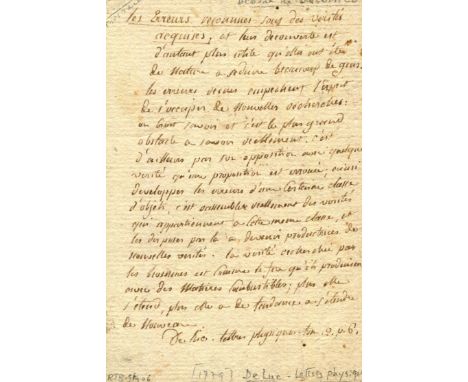 Les Erreurs reconnues sont des verités
acquises, et leur decouverte est
d'autant plus utile qu'elles ont été
de Nature a seduire beaucoup de gens.
les erreurs recues empechent l'esprit
de s'occuper de Nouvelles recherches:
on croit savoir et c'est le plus grand
obstacle a savoir reellement. c'est
d'ailleurs par son opposition avec quelque
verité qu'une proposition est erronée; ainsi
developper les erreurs d'une certaine classe
d'objets, c'est rassembler reellement des verités
qui appartiennent a cette meme classe, et
les disposer par la a devenir productrices de
nouvelles verités. la verité recherchée par
les hommes est comme le feu qu'ils produisent
avec des Matieres Combustibles; plus elle
s'etend, plus elle a de tendance a s'etendre
de Nouveau.
De Luc. lettres physiques. tom. 2. p. 6.
[1779] De Luc - Lettres physiq